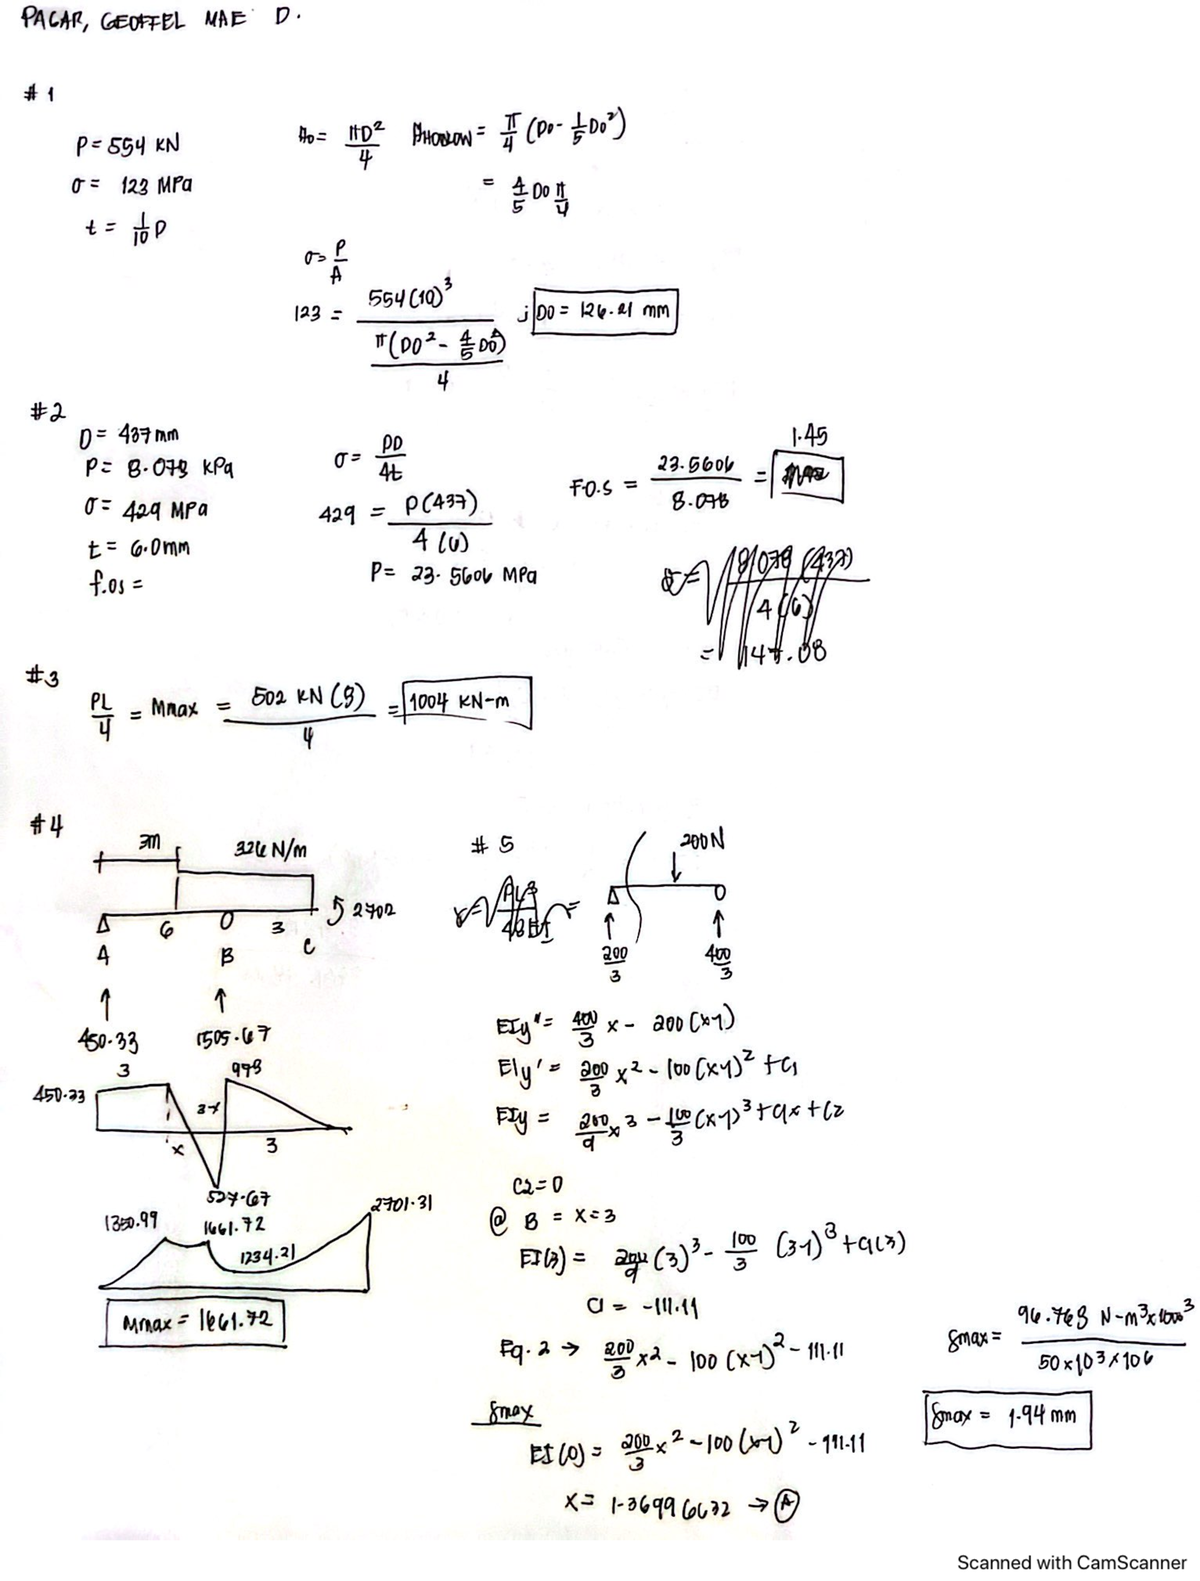 PACAR, GEOFFEL MAE D.
#1
P = 554 KN
σ = 123 MPa
t = 1/10 D
A₀ = πD²/4
AHOLLOW = π/4 (D₀ - 1/5 D₀²)
= 4/5 D₀ π/4
σ = P/A
123 = 554(10)³ / (π(D₀² - 4/5 D₀²)/4) ; D₀ = 126.21 mm
#2
D = 437 mm
P = 8.078 KPa
σ = 429 MPa
t = 6.0 mm
f.os =
σ = PD/4t
429 = P(437) / 4(6)
P = 23.5606 MPa
F.O.S = 23.5606 / 8.078 =
1.45
8.078 (437) / 4(6)
= 147.08
#3
PL/4 = Mmax = 502 KN (8) / 4 = 1004 KN-m
#4
3m 326 N/m
6 3 2702
A B C
450.33 1505.67
450.33 3 978
3-x
x 3
527.67
1350.99 1661.72 1234.21 2701.31
Mmax = 1661.72
#5
PL3 / 48EI =
200N
200/3 400/3
EIy" = 400/3 x - 200(x-1)
EIy' = 200/3 x² - 100(x-1)² + C1
EIy = 200/9 x³ - 100/3 (x-1)³ + C1x + C2
C2 = 0
@ B = x = 3
EI(3) = 200/9 (3)³ - 100/3 (3-1)³ + C1(3)
C1 = -111.11
Eq. 2 → 200/3 x² - 100(x-1)² - 111.11
δmax
EI(0) = 200/3 x² - 100(x-1)² - 111.11
x = 1.36996632 → A
δmax = 96.768 N-m³ x 1000³ / 50x10³x10⁶
δmax = 1.94 mm
Scanned with CamScanner